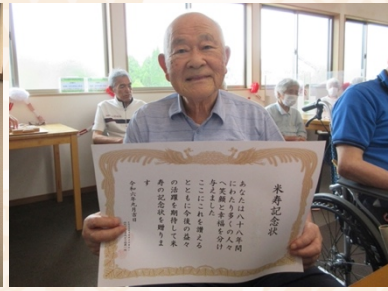 米寿記念状
あなたは八十八年間
にわたり多くの人々
へ笑顔と幸福を分け
与えました
ここにこれを讃える
とともに今後の益々
の活躍を期待して米
寿の記念状を贈りま
す